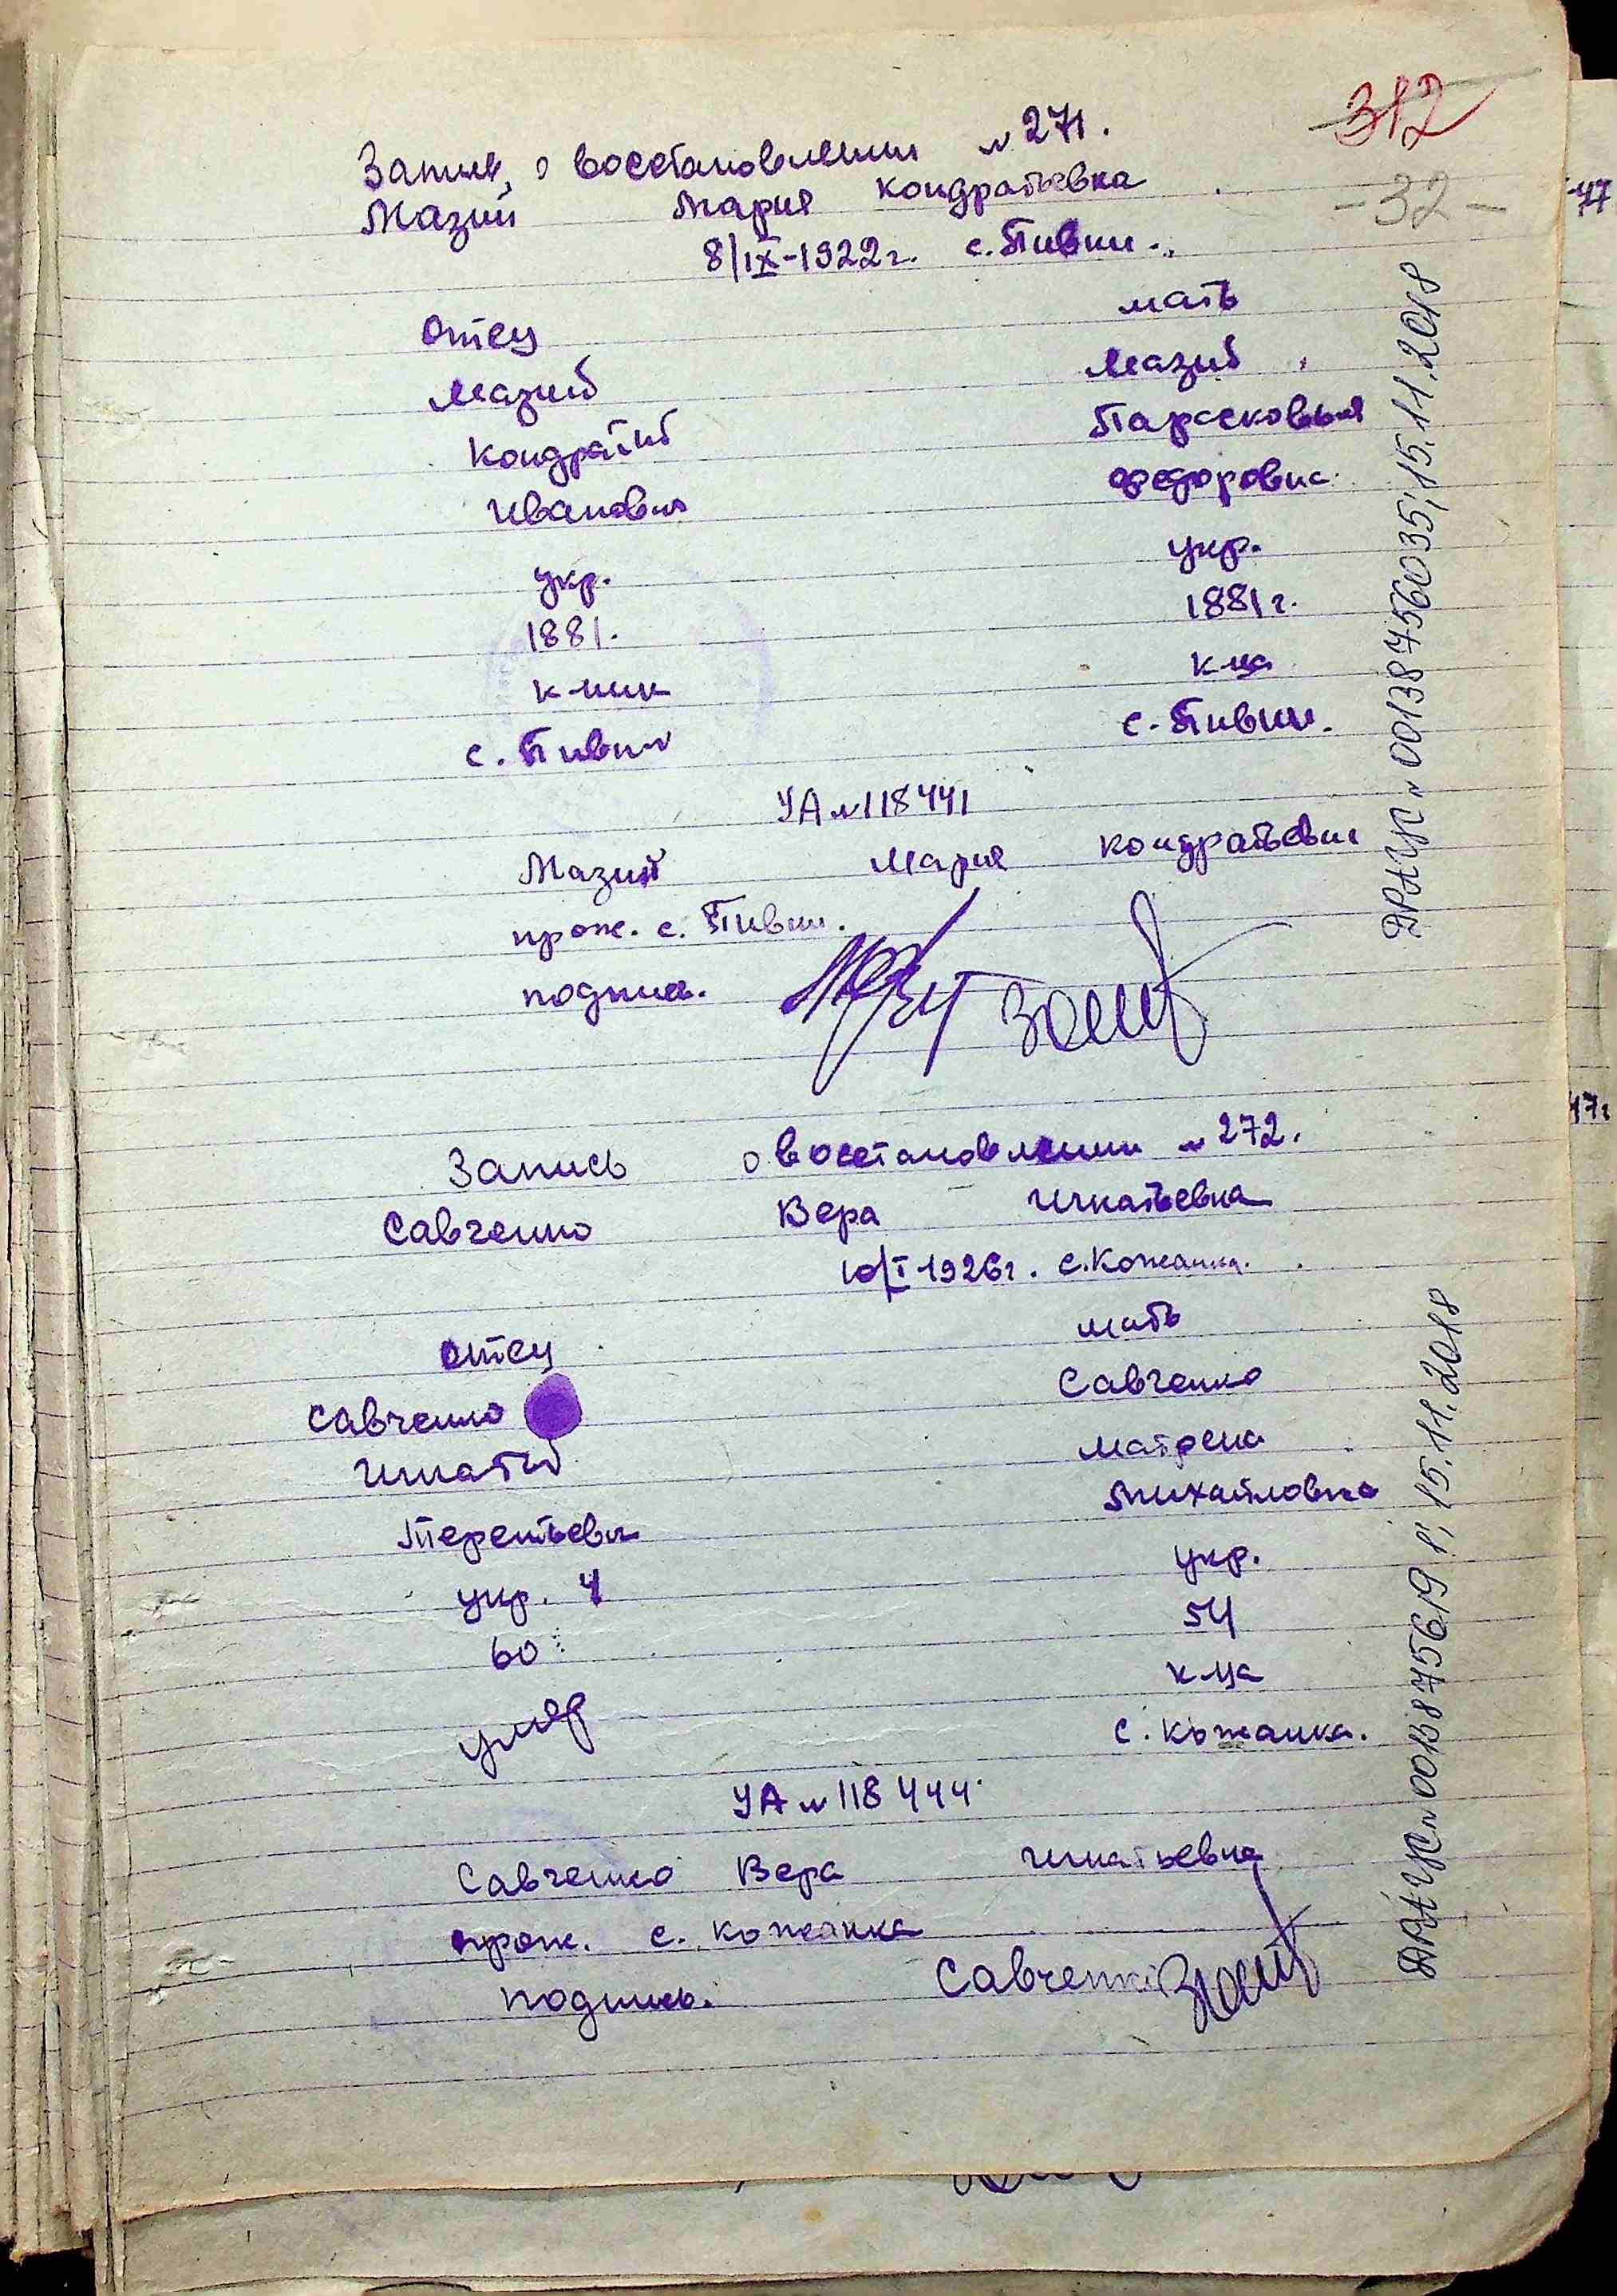 312
Запись о восстановлении № 271.
-32-
Мазий Мария Кондратьевна
8/IX-1922г. с. Пивни.
отец мать
Мазий Мазий
Кондратий Парасковья
Иванович Федоровна
укр. укр.
1881. 1881г.
к-ник к-ца
с. Пивни с. Пивни.
УА №118441
Мазий Мария Кондратьевн
прож. с. Пивни.
подпись.
ДРАЦС № 00138756035; 15.11.2018
Запись о восстановлении № 272.
Савченко Вера Игнатьевна
10/I-1926г. с. Кожанка.
отец мать
Савченко Савченко
Игнатий Матрена
Терентьевич Михайловна
укр. укр.
60 54
умер к-ца
с. Кожанка.
УА № 118444
Савченко Вера Игнатьевна
прож. с. Кожанка
подпись. Савченко
15.11.2018
47
47г